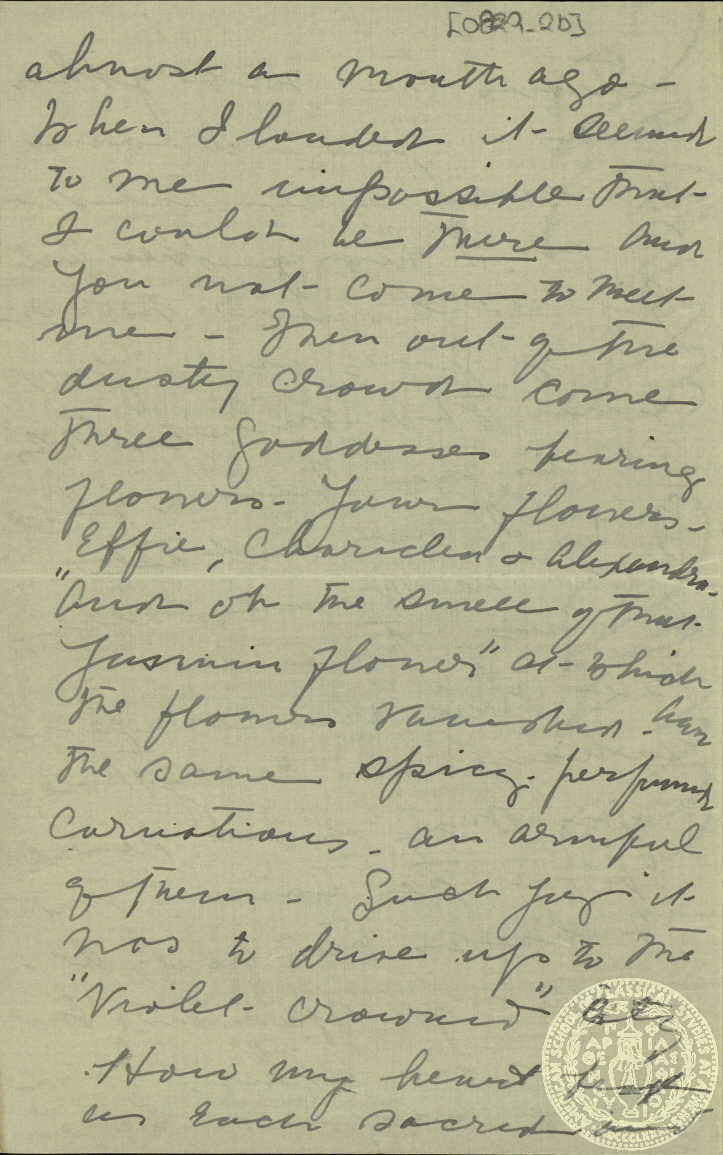 [0829-2b]
almost a month ago -
When I landed it seemed
to me impossible that
I could be there and
you not come to meet
me - Then out of the
dusty crowd come
three Goddesses bearing
flowers - Your flowers -
Effie, Chariclea & Alexandra -
"And oh the smell of that
Jasmin flower" at which
the flowers vanished -
the same spicy - perfumed
carnations - an armful
of them - Such joy it
was to drive up to the
"Violet-crowned" City
How my heart
as each sacred